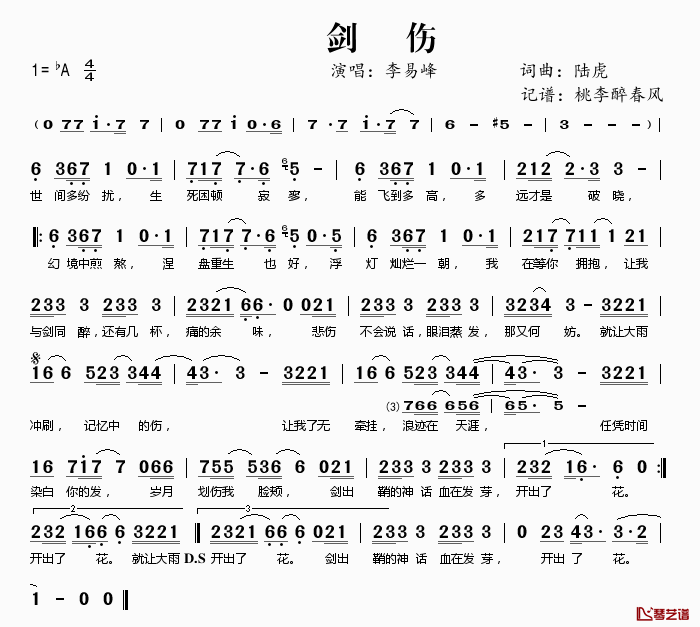 剑 伤
1=♭A 4/4 演唱：李易峰 词曲：陆虎
记谱：桃李醉春风
( 0 77 i·7 7 | 0 77 i 0·6 | 7 ·7 i·7 7 | 6 - #5 - | 3 - - - )|
6 367 1 0·1 | 717 7·6 6 5 - | 6 367 1 0·1 | 212 2·3 3 - |
世 间多纷 扰， 生 死困顿 寂 寥， 能 飞到多 高， 多 远才是 破 晓，
|: 6 367 1 0·1 | 717 7·6 6 5 0·5 | 6 367 1 0·1 | 217 711 1 21 |
幻 境中煎 熬， 涅 盘重生 也 好， 浮 灯 灿烂一 朝， 我 在等你 拥抱， 让我
233 3 233 3 | 2321 66· 0 021 | 233 3 233 3 | 3234 3 - 3221 |
与剑同 醉，还有几 杯， 痛的余 味， 悲伤 不会说 话，眼泪蒸 发， 那又何 妨。 就让大雨
16 6 523 344 | 43· 3 - 3221 | 16 6 523 344 | 43· 3 - 3221 |
(3) 766 656 | 65· 5 -
冲刷， 记忆中 的伤， 让我了无 牵挂， 浪迹在 天涯， 任凭时间
1
16 7i7 7 066 | 755 536 6 021 | 233 3 233 3 | 232 16· 6 0 :|
染白 你的发， 岁月 划伤我 脸颊， 剑出 鞘的神 话 血在发 芽， 开出了 花。
2 3
232 166 6 3221 || 2321 66· 6 021 | 233 3 233 3 | 0 23 43· 3·2 |
开出了 花。 就让大雨 D.S 开出了 花。 剑出 鞘的神 话 血在发 芽， 开出 了 花。
1 - 0 0 ||
琴艺谱